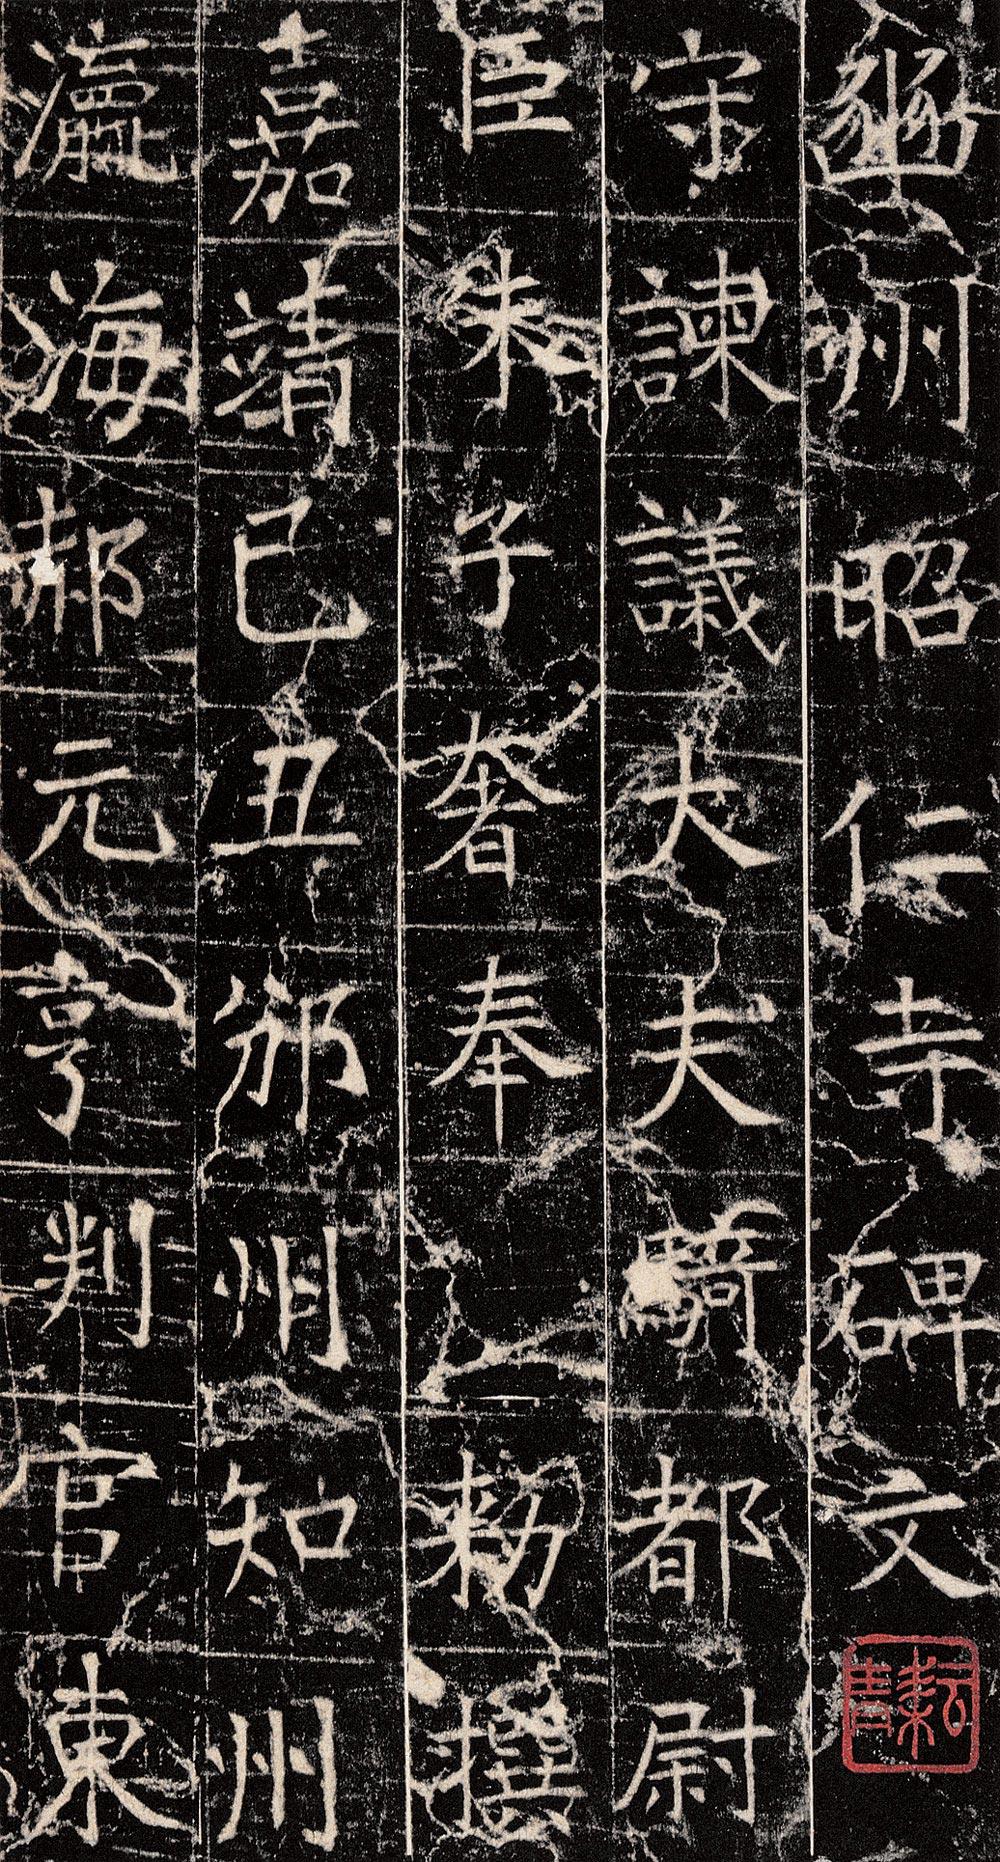 豳州昭仁寺碑文
耘青
守諫議大夫騎都尉
臣朱子奢奉 勑撰
嘉靖己丑邠州知州
瀛海郝元亨判官東